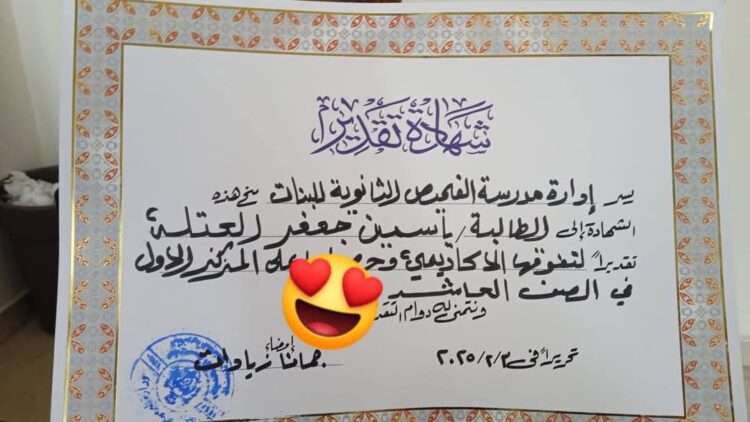 شهادة تقدير
يسر إدارة مدرسة الفحيص الثانوية للبنات منح هذه
الشهادة إلى الطالبة / ياسمين جعفر العتلة
تقديراً لتفوقها الأكاديمي على المركز الأول
في الصف العاشر
ونتمنى له دوام
تحريراً في ٢٠٢٥/٢/٣
إمضاء
جمانا زيادات